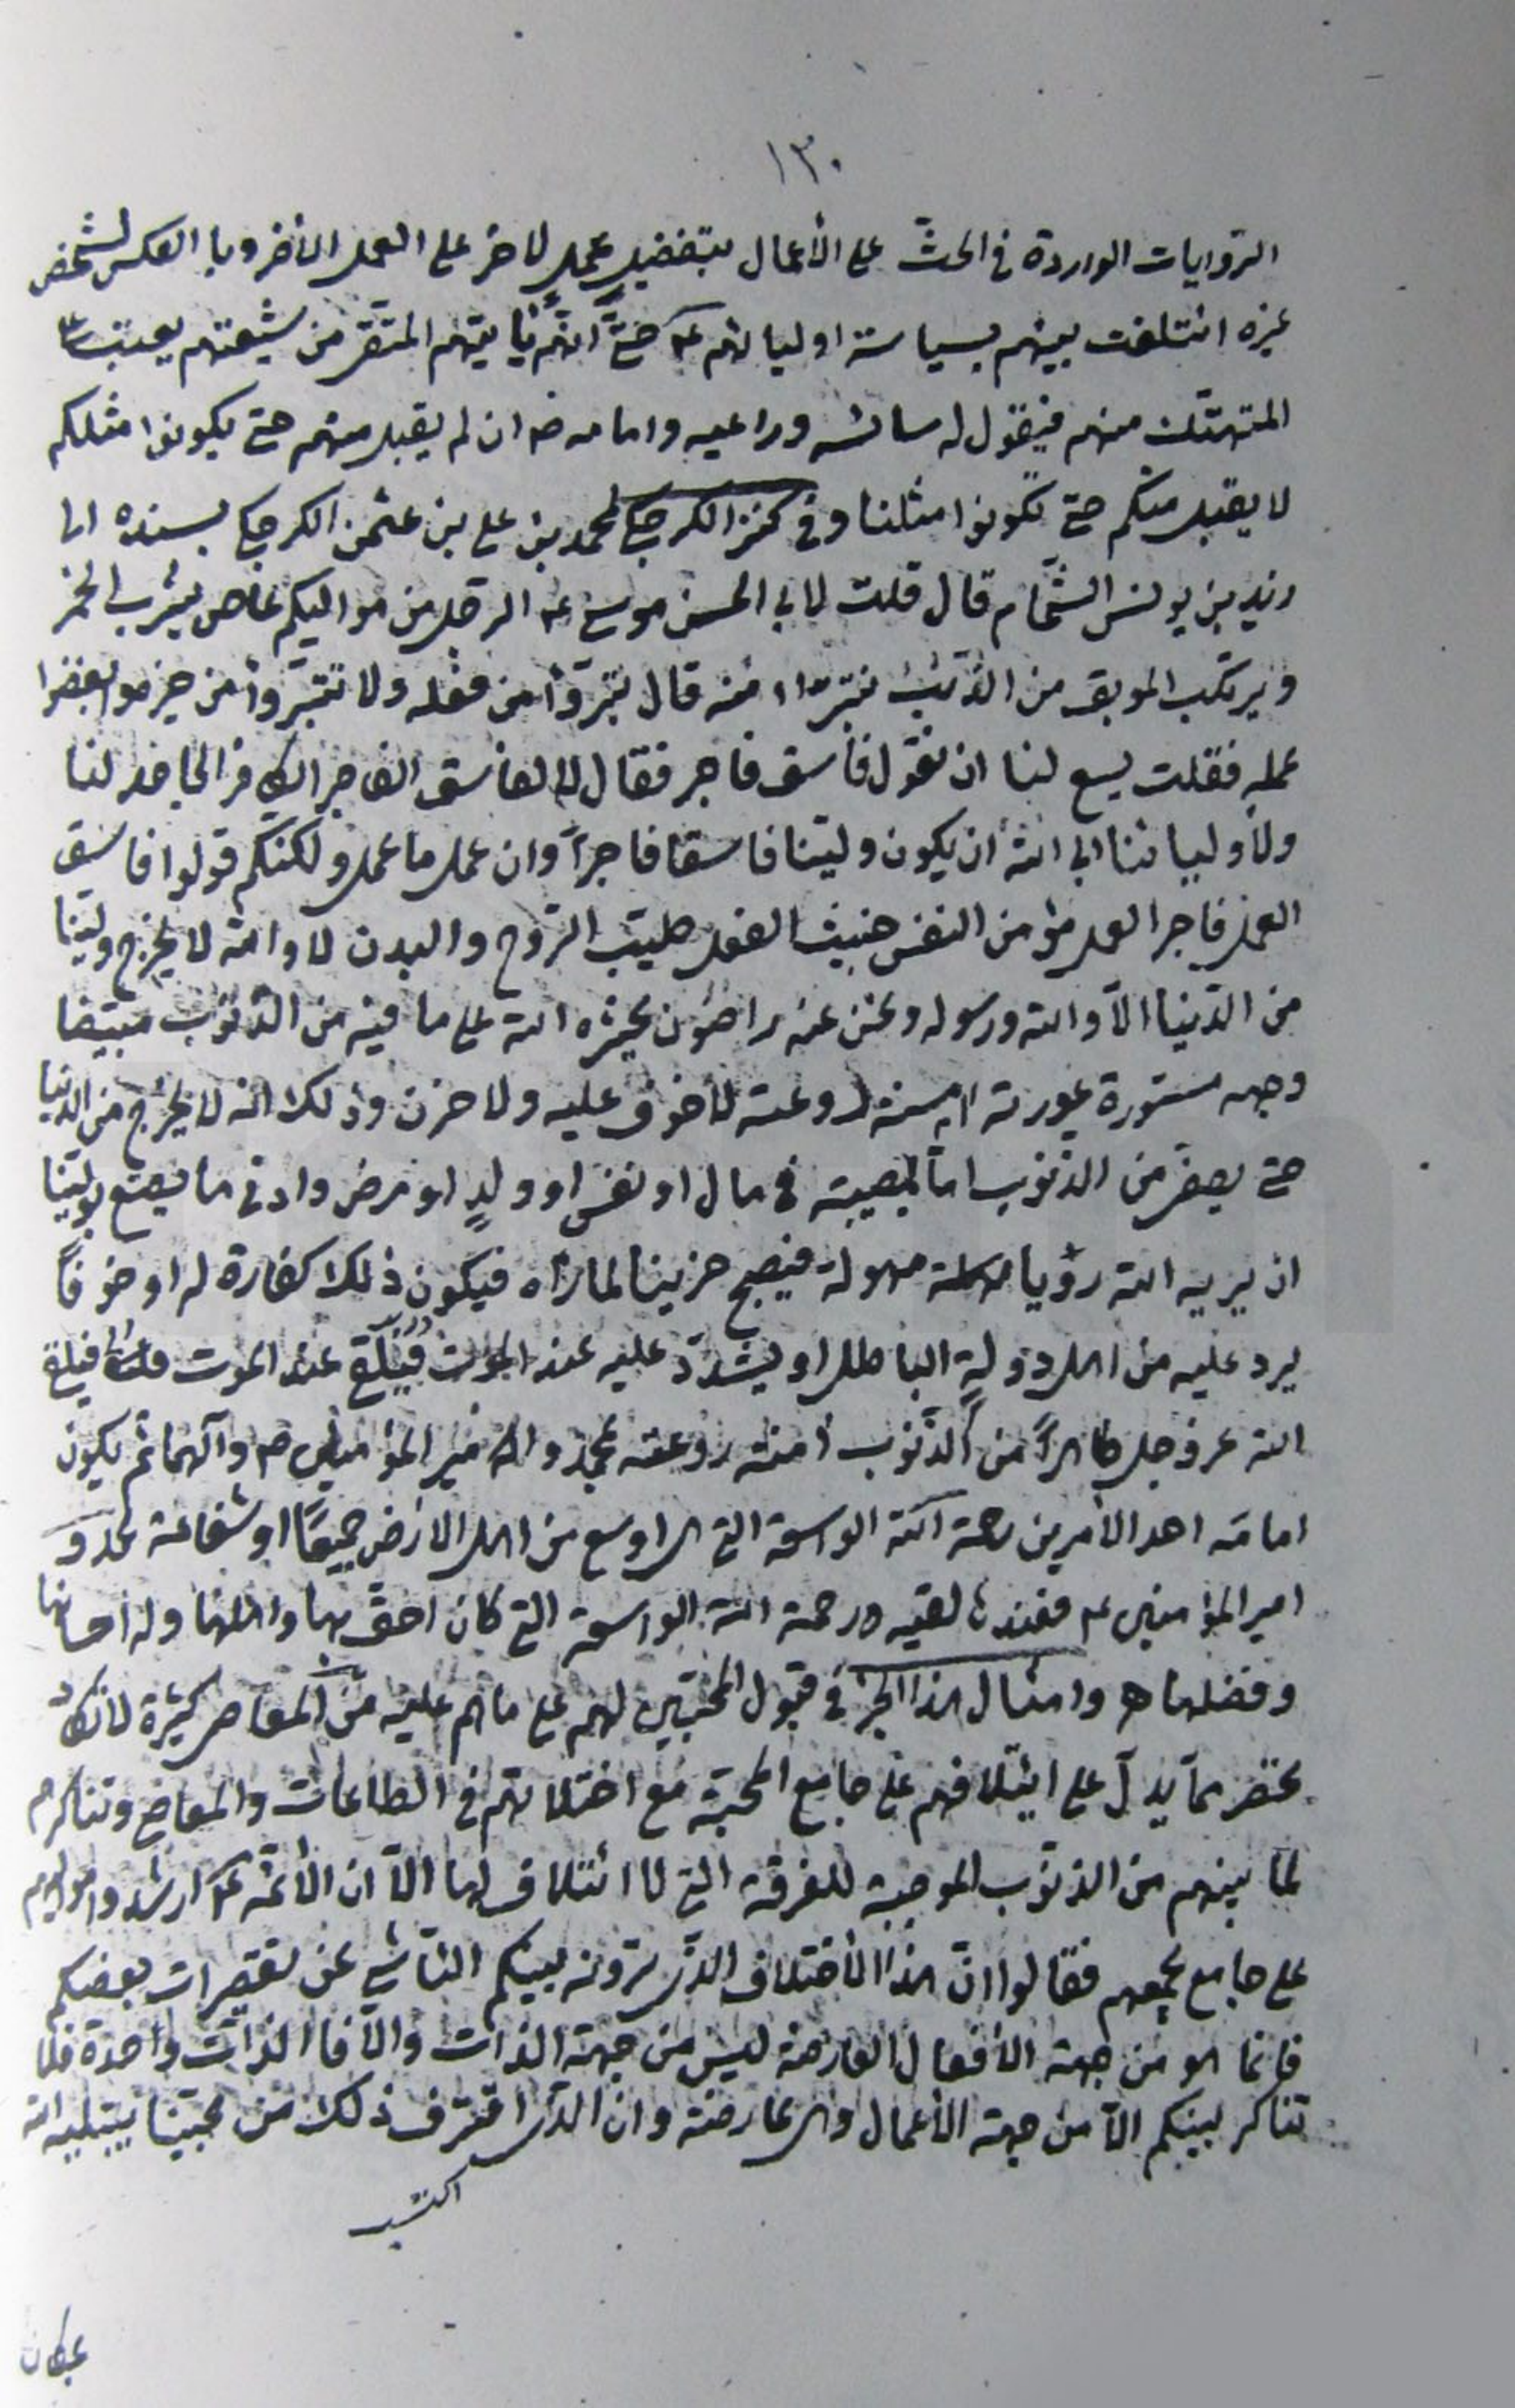 ١٣٠
الروايات الواردة في الحثّ على الأعمال بتفضيل عمل لاخر على العمل الأخر وبا العكس لشخص
غيره ائتلفت بينهم بسياسة اوليائهم ع حتّى انّهم يأتيهم المتقر من شيعتهم يعيب
المتهتك منهم فيقول له سائسه وراعيه وامامه ص ان لم يقبل منهم حتى يكونوا مثلكم
لا يقبل منكم حتى تكونوا مثلنا وفي كنز الكرجكي لمحمد بن علي بن عثمن الكرجكي بسنده الى
زيد بن يونس الشحّام قال قلت لابي الحسن موسى ع الرجل من مواليكم عاص يشرب الخمر
ويرتكب الموبق من الذنب نتبرّأ منه قال تبرّوأ من فعله ولا تتبرّوأ من خيره وابغضوا
عمله فقلت يسع لنا ان نقول فاسق فاجر فقال لا الفاسق الفاجر الكافر الجاحد لنا
ولأوليائنا ابى الله ان يكون وليّنا فاسقا فاجرا وان عمل ما عمل ولكنكم قولوا فاسق
العمل فاجر العمل مؤمن النفس خبيث الفعل طيّب الرّوح والبدن لا والله لا يخرج وليّنا
من الدّنيا الاّ والله ورسوله ونحن عنه راضون يحشره الله على ما فيه من الذّنوب مبيّضا
وجهه مستورة عورته امنة روعته لا خوف عليه ولا حزن وذلك انه لا يخرج من الدنيا
حتى يصفى من الذّنوب امّا بمصيبة في مال او نفس او ولدٍ او مرض وادنى ما يصنع بوليّنا
ان يريه الله رؤيا مهولة فيصبح حزينا لما رأه فيكون ذلك كفارة له او خوفاً
يرد عليه من اهل دولةٍ الباطل او يشدّد عليه عند الموت فيلقى
الله عز وجل طاهراً من الذّنوب أمنة روعته بمحمد وامير المؤمنين ص وآلهما ثم يكون
امامه احد الأمرين رحمة الله الواسعة التي هي اوسع من اهل الارض جميعًا او شفاعة محمد و
امير المؤمنين ع فعندها تصيبه رحمة الله الواسعة التي كان احق بها واهلها وله احسانها
وفضلها ه وامثال هذا الخبر في قبول المحبّين لهم على ما هم عليه من المعاصي كثيرة لا تكاد
تحصر ممّا يدلّ على ايتلافهم على جامع المحبّة مع اختلافهم في الطاعات والمعاصي وتناكرهم
لما بينهم من الذنوب الموجبة للفرقة التي لا ائتلاف لها الاّ ان الأئمّة ع ارشدوا مواليهم
على جامع يجمعهم فقالوا انّ هذا الأختلاف الذي ترونه بينكم الناشي عن تقصيرات بعضكم
فانما هو من جهة الأفعال العارضة ليس من جهة الذات والاّ فا الذات واحدة فلا
تناكر بينكم الاّ من جهة الأعمال وهي عارضة وان الذي اقترف ذلك من محبّينا يبتليه الله